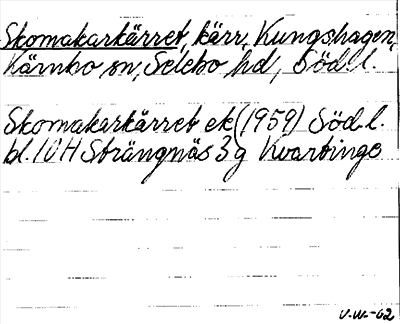 Skomakarkärret, kärr, Kungshagen,
Kärnbo sn, Selebo hd, Södl.
Skomakarkärret ek (1959) Söd.l.
bl. 10H Strängnäs 3g Kvartinge
V.W.-62